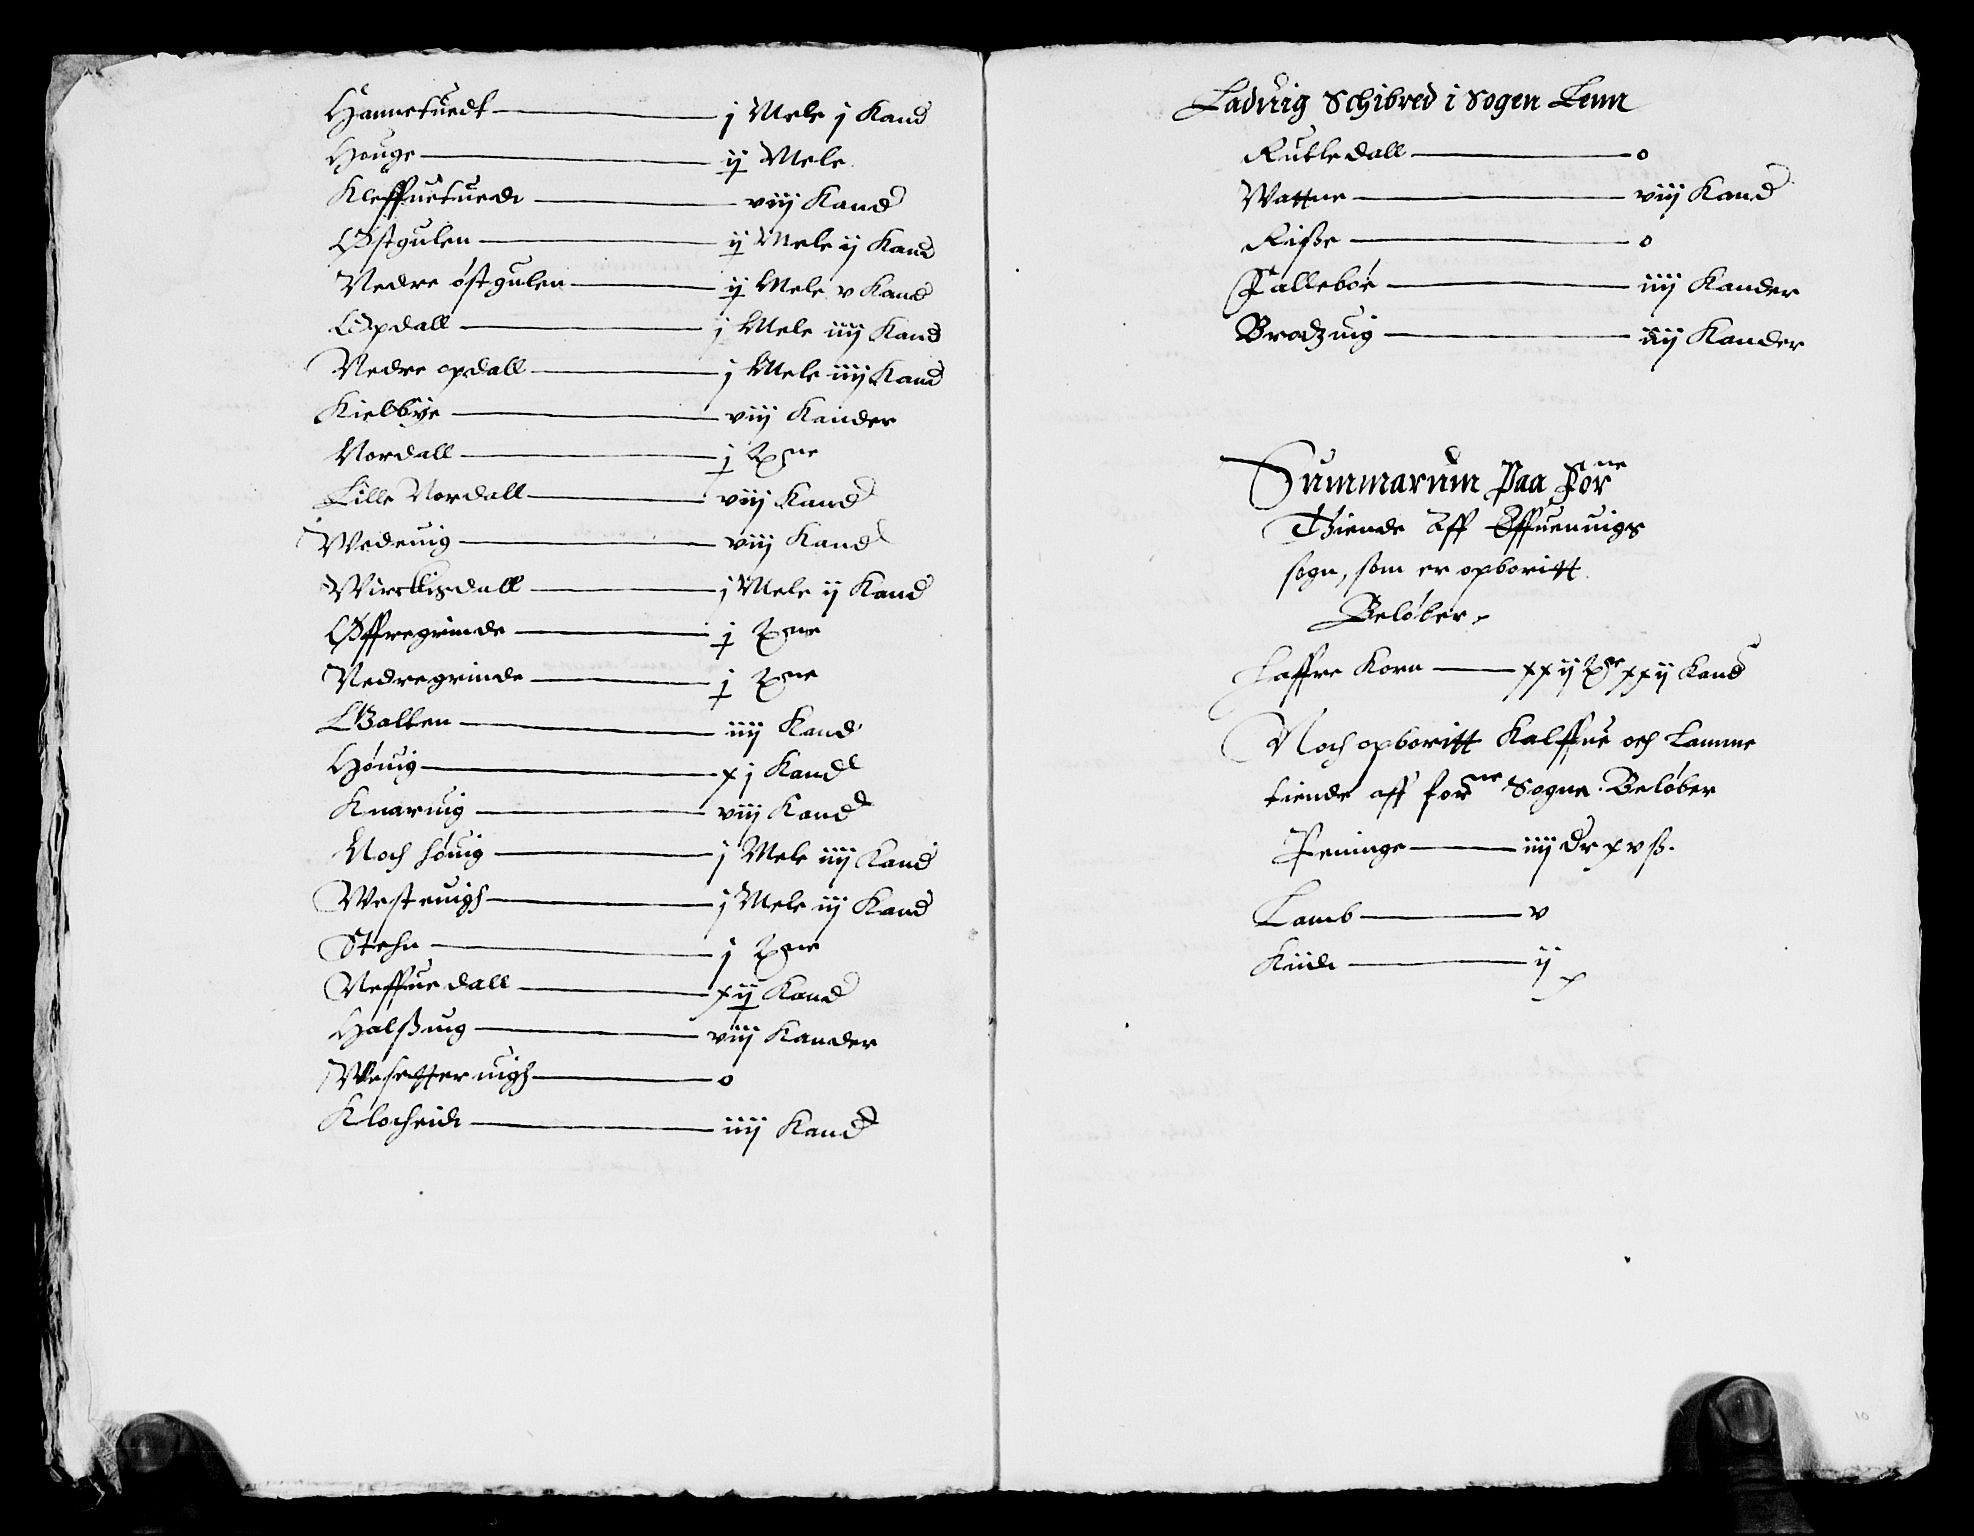 Hannetuedt — j Mele j Kand
Houge — ij Mele
Kleffuetuedt — viij Kand
Østgulen — ij Mele ij Kand
Nedre østgulen — ij Mele v Kand
Opdall — j Mele iiij Kand
Nedre opdall — j Mele iiij Kand
Kielbye — viij Kander
Nordall — j Tne
Lille Nordall — viij Kand
Wedeuig — viij Kand
Wircklisdall — j Mele ij Kand
Øffregrinde — j Tne
Nedregrinde — j Tne
Galten — iiij Kand
Høuig — xj Kand
Knaruig — viij Kand
Noch høuig — j Mele iiij Kand
Westeuigh — j Mele iij Kand
Stehn — j Tne
Neffuedall — xij Kand
Halsuig — viij Kander
Wesetteruigh — o
Klocheide — iiij Kand
Laduig Schibred i Sogen Lenn
Rutledall — o
Wattne — viij Kand
Riise — o
Palleböe — iiij Kander
Brodzuig — iiij Kander
Summarum Paa forne
Thiende Aff Effuenuigs
sogn, som er opboritt
Beløber
Haffre Korn — xxij Tnr xxij Kand
Noch opboritt Kalffue och Lamme
tiende aff forne Sogne Beløber
Peninge — iiij dr xv ß.
Lamb — v
Kiide — ij
10